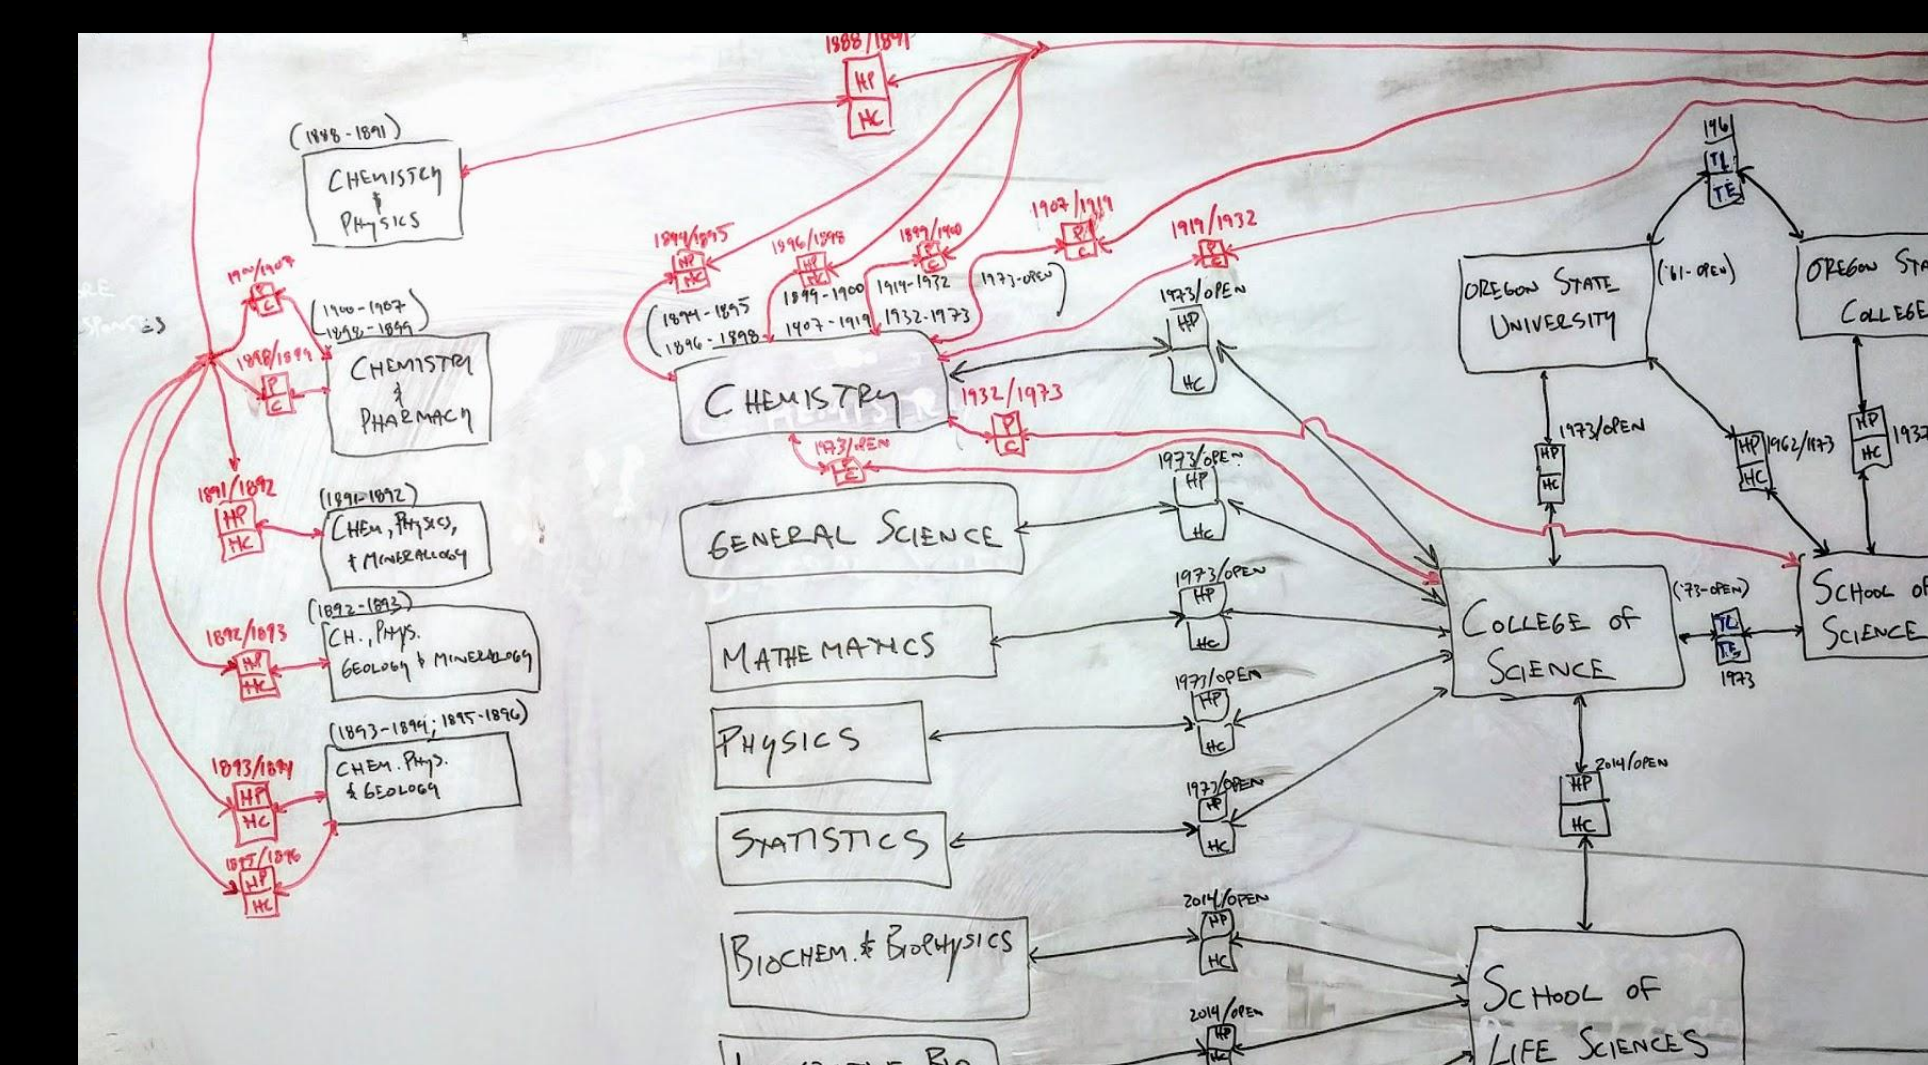 1888/1891
HP
HC
(1888-1891)
CHEMISTRY
&
PHYSICS
1900/1907
P
C
(1900-1907)
1898-1899
CHEMISTRY
&
PHARMACY
1898/1899
P
C
1891/1892
HP
HC
(1891-1892)
CHEM, PHYSICS,
& MINERALOGY
1892/1893
HP
HC
(1892-1893)
CH., PHYS.
GEOLOGY & MINERALOGY
1893/1894
HP
HC
(1893-1894; 1895-1896)
CHEM. PHYS.
& GEOLOGY
1895/1896
HP
HC
1894/1895
HP
HC
1896/1898
HP
HC
1899/1900
P
C
1907/1919
P
C
1919/1932
P
C
(1894-1895
1896-1898
1899-1900
1907-1919
1919-1932
1932-1973
1973-OPEN)
CHEMISTRY
1973/OPEN
HP
HC
1932/1973
P
C
1973/OPEN
P
C
GENERAL SCIENCE
1973/OPEN
HP
HC
MATHEMATICS
1973/OPEN
HP
HC
PHYSICS
1973/OPEN
HP
HC
STATISTICS
1973/OPEN
HP
HC
BIOCHEM. & BIOPHYSICS
2014/OPEN
HP
HC
2014/OPEN
HP
HC
BIO
196
TL
TE
OREGON STATE
UNIVERSITY
('61-OPEN)
OREGON STA
COLLEGE
1973/OPEN
HP
HC
HP
HC
1962/1973
HP
HC
1932
COLLEGE OF
SCIENCE
('73-OPEN)
TL
TE
1973
SCHOOL OF
SCIENCE
2014/OPEN
HP
HC
SCHOOL OF
LIFE SCIENCES